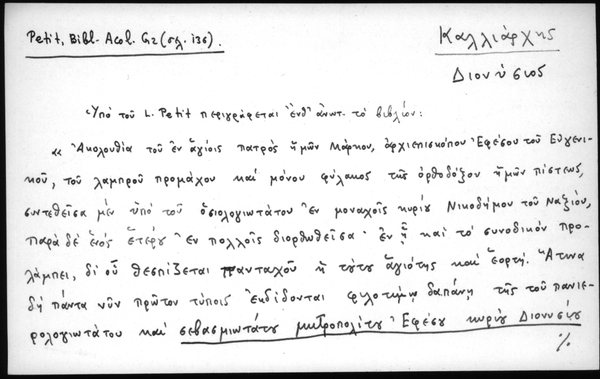 Petit, Bibl. Acol. Gr. (σελ. 136).
Καλλιάρχης
Διονύσιος
Ὑπὸ τοῦ L. Petit περιγράφεται ἔνθ' ἀνωτ. τὸ βιβλίον:
« Ἀκολουθία τοῦ ἐν ἁγίοις πατρὸς ἡμῶν Μάρκου, ἀρχιεπισκόπου Ἐφέσου τοῦ Εὐγενι-
κοῦ, τοῦ λαμπροῦ προμάχου καὶ μόνου φύλακος τῆς ὀρθοδόξου ἡμῶν πίστεως,
συντεθεῖσα μὲν ὑπὸ τοῦ ὁσιολογιωτάτου ἐν μοναχοῖς κυρίου Νικοδήμου τοῦ Ναξίου,
παρὰ δὲ ἑνὸς ἑτέρου ἐν πολλοῖς διορθωθεῖσα· ἐν ᾗ καὶ τὸ συνοδικὸν προ-
λάμπει, δι' οὗ θεσπίζεται πανταχοῦ ἡ τούτου ἁγιότης καὶ ἑορτή. Ἅτινα
δὴ πάντα νῦν πρῶτον τύποις ἐκδίδονται φιλοτίμῳ δαπάνῃ τῆς τοῦ πανιε-
ρολογιωτάτου καὶ σεβασμιωτάτου μητροπολίτου Ἐφέσου κυρίου Διονυσίου
%